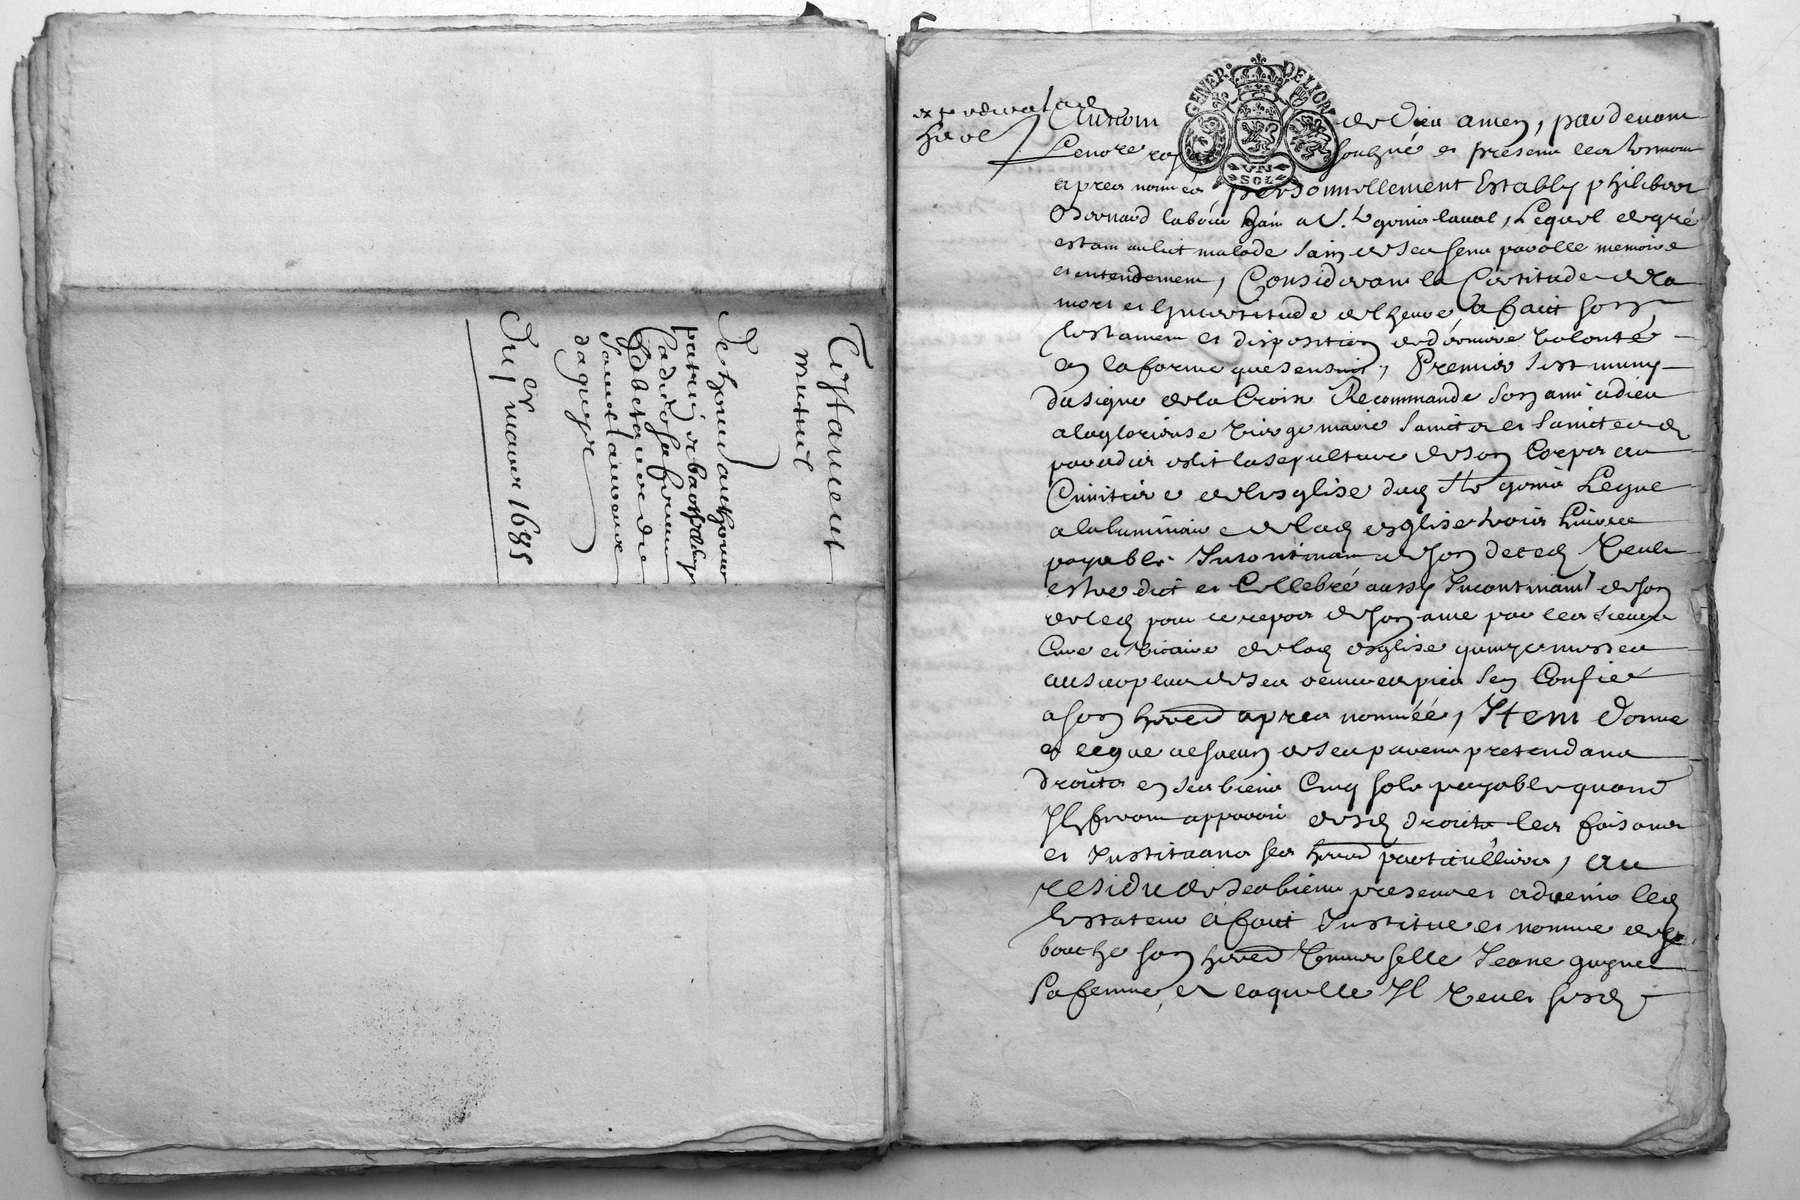 Testament
mutuel
De honn. anthoine
patrin et
Sa femme
de
Saint laurant
daguyn
Du mars 1685
GENER. DE LYON
VN
SOL
Au nom de Dieu amen, par devant
Le no.re royal soubzsigné et present les tesmoins
apres nommés personnellement Estably philibert
Bernard labour hain a St genis laual, Lequel de gré
estant au lict malade sain de ses sens parolle memoire
et entendement, Considerant la Certitude de la
mort et lIncertitude de lheure, a faict son
testament et disposition de derniere volonté
en la forme que sensuit, Premier sest muny
du signe de la Croix Recommande son ame a dieu
a la glorieuse vierge marie saincts et sainctes de
paradis eslit la sepulture de son Corps au
Cimitiere de lesglise dud St genis Legue
a la luminaire de lad esglise trois livres
payable Incontinant de son deced veult
estre dict et Cellebré aussy Incontinant de son
deced pour le repos de son ame par les sieurs
Curé et vicaire de lad esglise quinze messes
aus de ses pies sen Confiet
a son hered apres nommée, Item donne
et legue a chacun de ses parens pretendans
droicts en ses biens Cinq sols payable quand
Ils feront apparoir desd droicts les faisant
et Instituant ses hered particulliers, au
residu de ses biens presens et advenir led
testateur a faict Institué et nommé de sa
bouche son hered universelle Jeane
sa femme, a laquelle Il veult susd